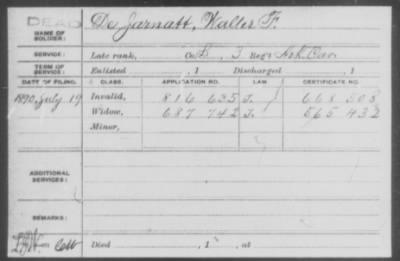 DEAD
NAME OF SOLDIER:
De Jarnatt, Walter F.
SERVICE:
Late rank, Co. B, 3 Reg't Ark Cav
TERM OF SERVICE:
Enlisted , 1 Discharged , 1
DATE OF FILING. CLASS. APPLICATION NO. LAW. CERTIFICATE NO.
1890, July 19 Invalid, 816 635 J. 668 508
Widow, 687 742 J. 565 432
Minor,
ADDITIONAL SERVICES:
REMARKS:
Died , 1 , at